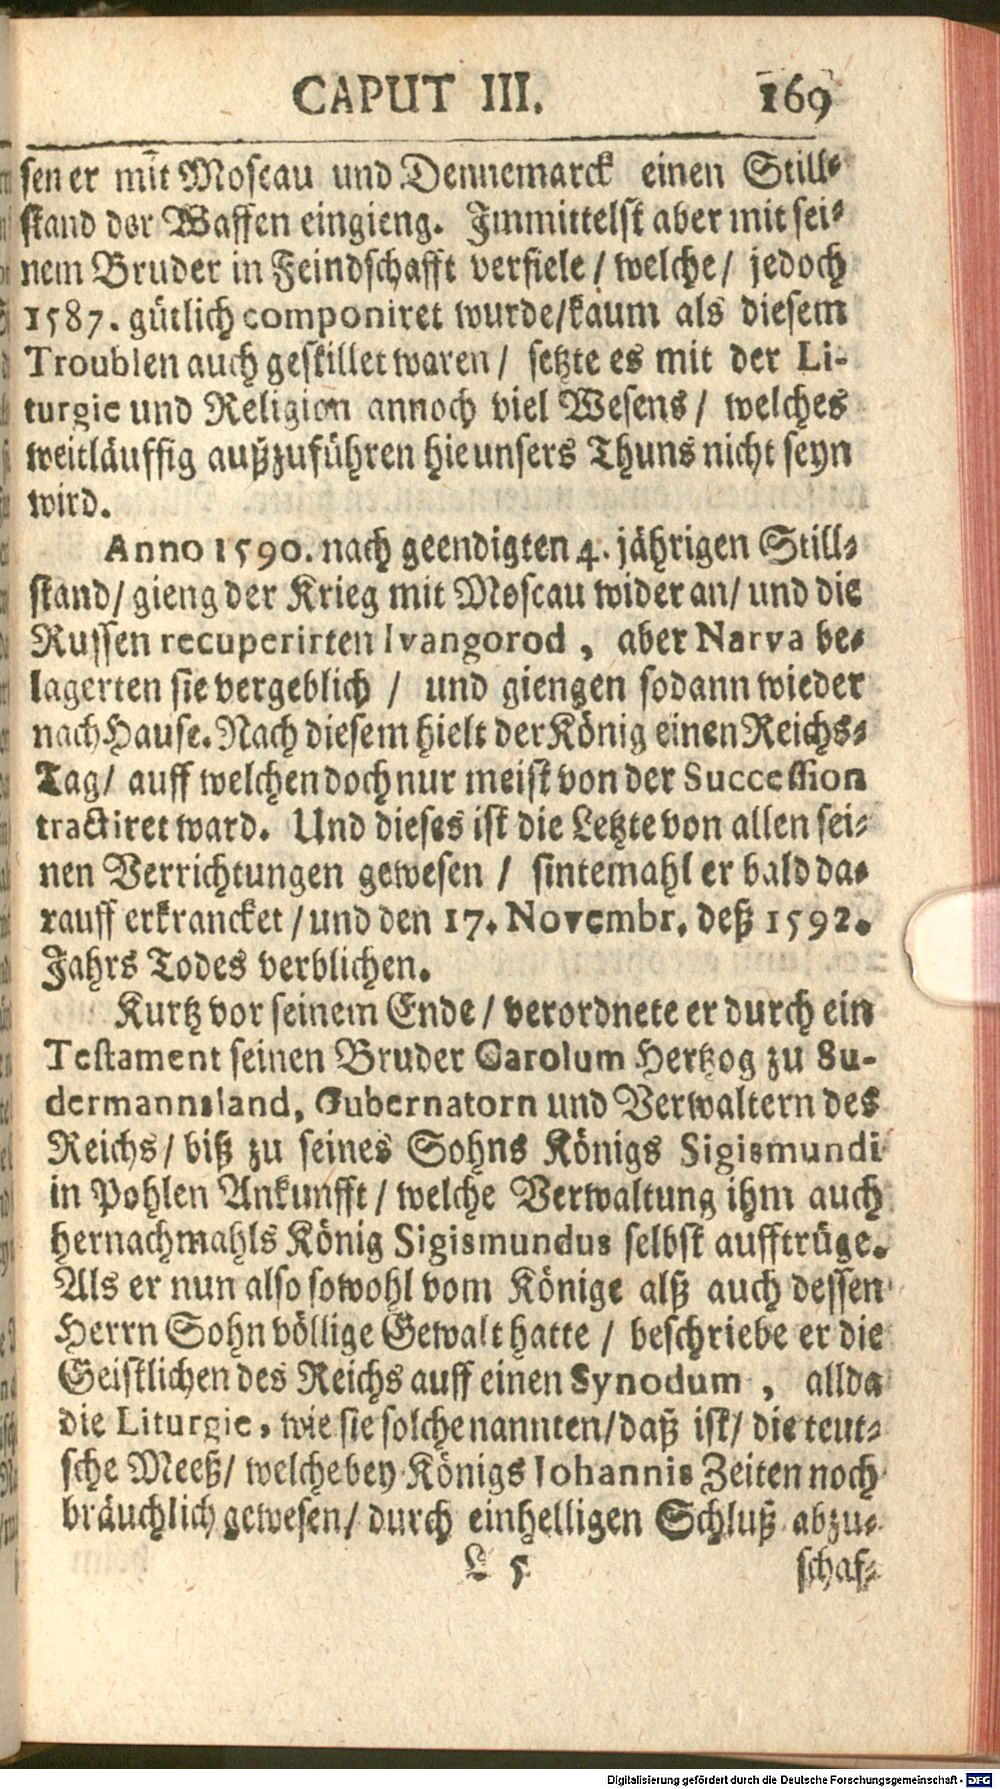 CAPUT III. 169
sen er mit Moscau und Dennemarck einen Still-
stand der Waffen eingieng. Immittelst aber mit sei-
nem Bruder in Feindschafft verfiele / welche / jedoch
1587. gütlich componiret wurde/kaum als diesem
Troublen auch gestillet waren / setzte es mit der Li-
turgie und Religion annoch viel Wesens / welches
weitläuffig außzuführen hie unsers Thuns nicht seyn
wird.
Anno 1590. nach geendigten 4. jährigen Still-
stand/ gieng der Krieg mit Moscau wider an/ und die
Russen recuperirten Ivangorod, aber Narva be-
lagerten sie vergeblich / und giengen sodann wieder
nach Hause. Nach diesem hielt der König einen Reichs-
Tag/ auff welchen doch nur meist von der Succession
tractiret ward. Und dieses ist die Letzte von allen sei-
nen Verrichtungen gewesen / sintemahl er bald da-
rauff erkrancket / und den 17. Novembr. deß 1592.
Jahrs Todes verblichen.
Kurtz vor seinem Ende / verordnete er durch ein
Testament seinen Bruder Carolum Hertzog zu Su-
dermannsland, Gubernatorn und Verwaltern des
Reichs / biß zu seines Sohns Königs Sigismundi
in Pohlen Ankunfft / welche Verwaltung ihm auch
hernachmahls König Sigismundus selbst aufftrüge.
Als er nun also sowohl vom Könige alß auch dessen
Herrn Sohn völlige Gewalt hatte / beschriebe er die
Geistlichen des Reichs auff einen Synodum, allda
die Liturgie, wie sie solche nannten/ daß ist/ die teut-
sche Meeß/ welche bey Königs Iohannis Zeiten noch
bräuchlich gewesen/ durch einhelligen Schluß abzu-
L 5 schaf-
Digitalisierung gefördert durch die Deutsche Forschungsgemeinschaft - DFG